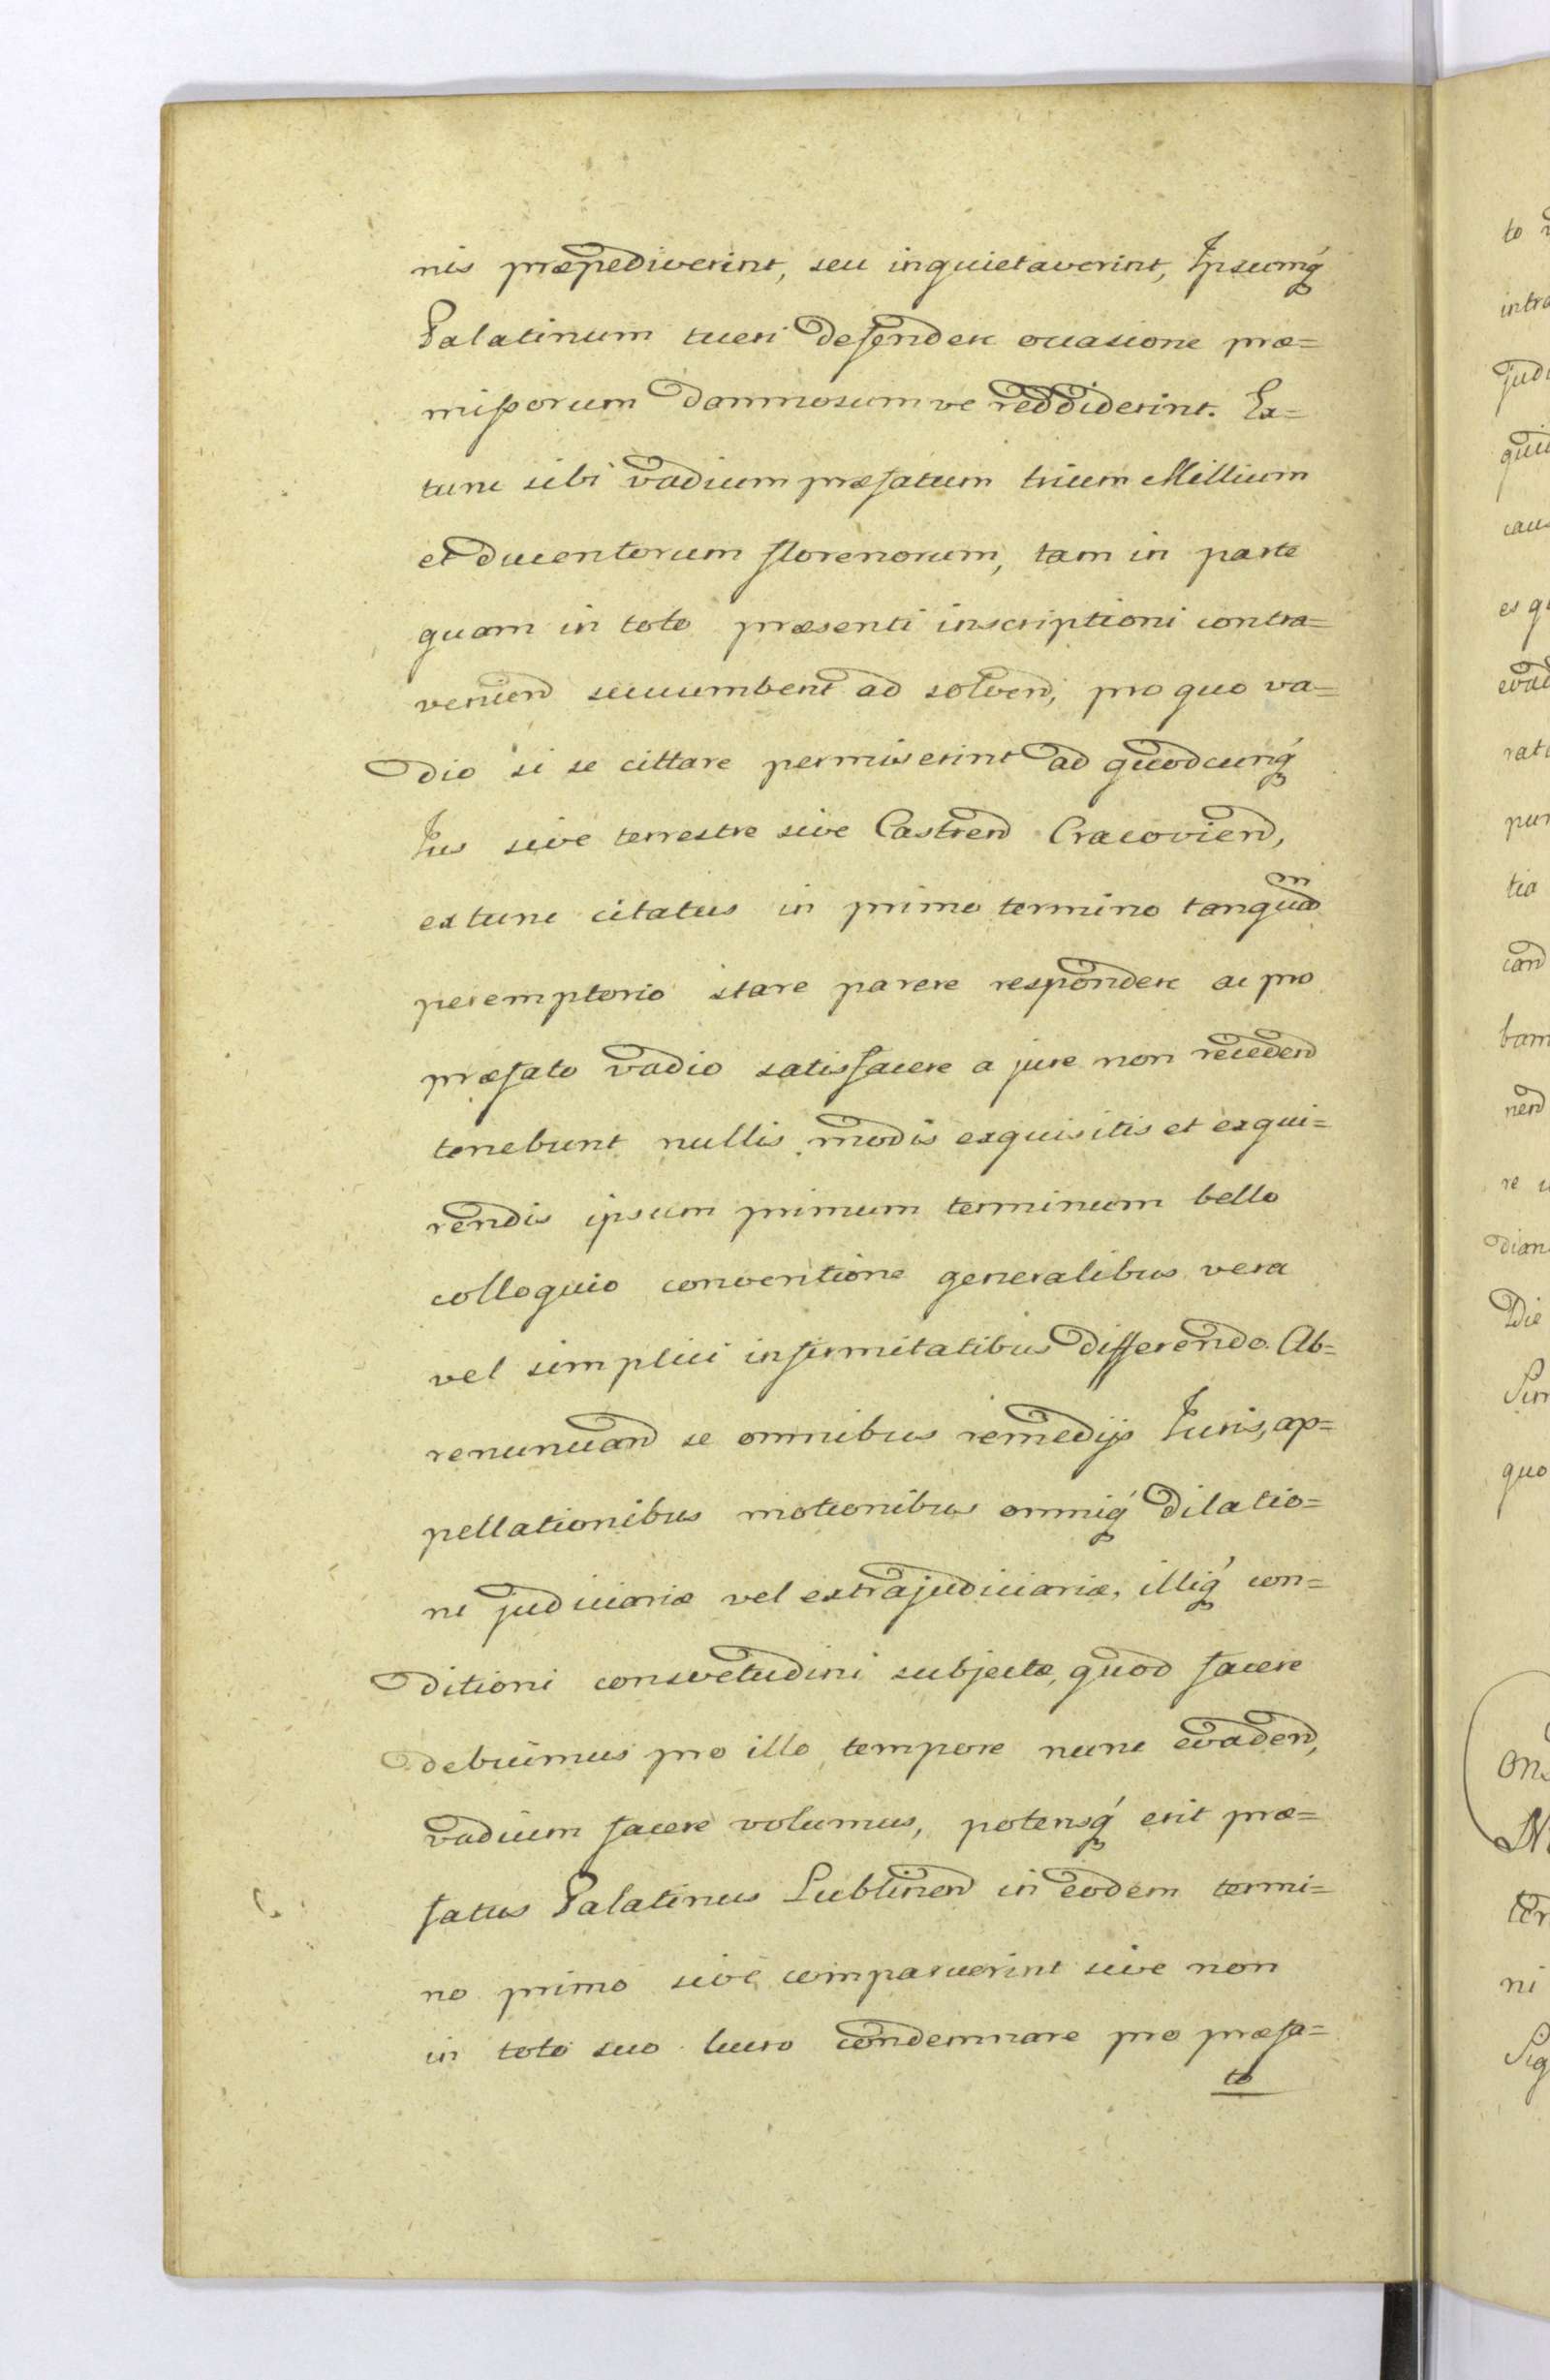 nis præpediverint, seu inquietaverint, Ipsumq́
Palatinum tueri defendere occasione præ=
missorum damnosumve reddiderint. Ex=
tunc sibi vadium præfatum trium Millium
et ducentorum florenorum, tam in parte
quam in toto præsenti inscriptioni contra=
venien succumbent ad solven, pro quo va=
dio si se cittare permiserint ad quodcunq́
Jus sive terrestre sive Castren Cracovien,
extunc citatus in primo termino tanquam
peremptorio stare parere respondere ac pro
præfato vadio satisfacere a jure non receden
tenebunt nullis modis exquisitis et exqui=
rendis ipsum primum terminum bello
colloquio conventione generalibus vera
vel simplici infirmitatibus differendo. Ab=
renuncian se omnibus remedijs Juris, ap=
pellationibus motionibus omniq́ dilatio=
ni judiciariæ vel extrajudiciariæ, illiq́ con=
ditioni consvetudini subjectæ, quod facere
debuimus pro illo tempore nunc evaden,
vadium facere volumus, potensq́ erit præ=
fatus Palatinus Lublinen in eodem termi=
no primo sive comparuerint sive non
in toto suo lucro condemnare pro præfa=
to
to
intra
judi
caus
es q
evad
rati
pur
tia
can
bam
nen
re
dian
Die
quo
ni
Sig